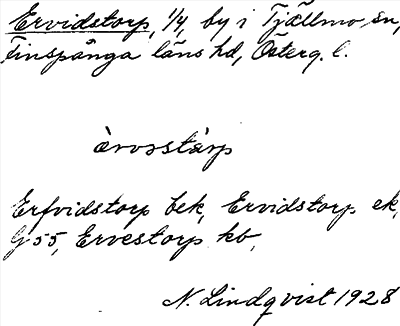 Ervidstorp, 1/4, by i Tjällmo sn,
Finspånga läns hd, Österg. l.
àrvstàrp
Erfvidstorp bek, Ervidstorp ek,
G 55, Ervestorp kb,
N. Lindqvist 1928